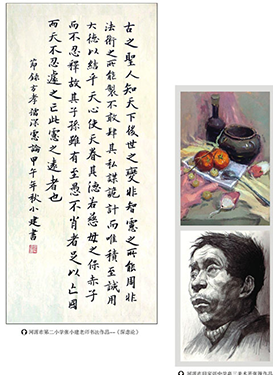 古之聖人知天下後世之變非智慮之所能周非
法術之所能製不敢肆其私謀詭計而惟積至誠用
大德以結乎天心使天眷其德若慈母之保赤子
而不忍釋故其子孫雖有至愚不肖者足以亡國
而天不忍遽亡之此慮之遠者也
節錄方孝儒深慮論甲午年秋小建書
河源市第二小学黄小建老师书法作品——《深虑论》
河源市田家炳中学高三美术班